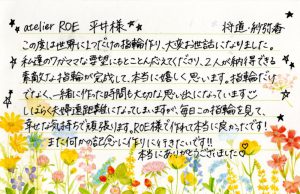 atelier ROE 平井様 将道・紗弥香
この度は世界に1つだけの指輪作り、大変お世話になりました。
私達のワガママな要望にもとことん応えてくださり、2人が納得できる
素敵な指輪が完成して、本当に嬉しく思います。指輪だけ
でなく、一緒に作れた時間も大切な思い出になっています
しばらく夫婦遠距離になってしまいますが、毎日この指輪を見て、
幸せな気持ちで頑張ります。ROE様で作れて本当に良かったです!
また何かの記念に作りに行きたいです!!
本当にありがとうございました♡